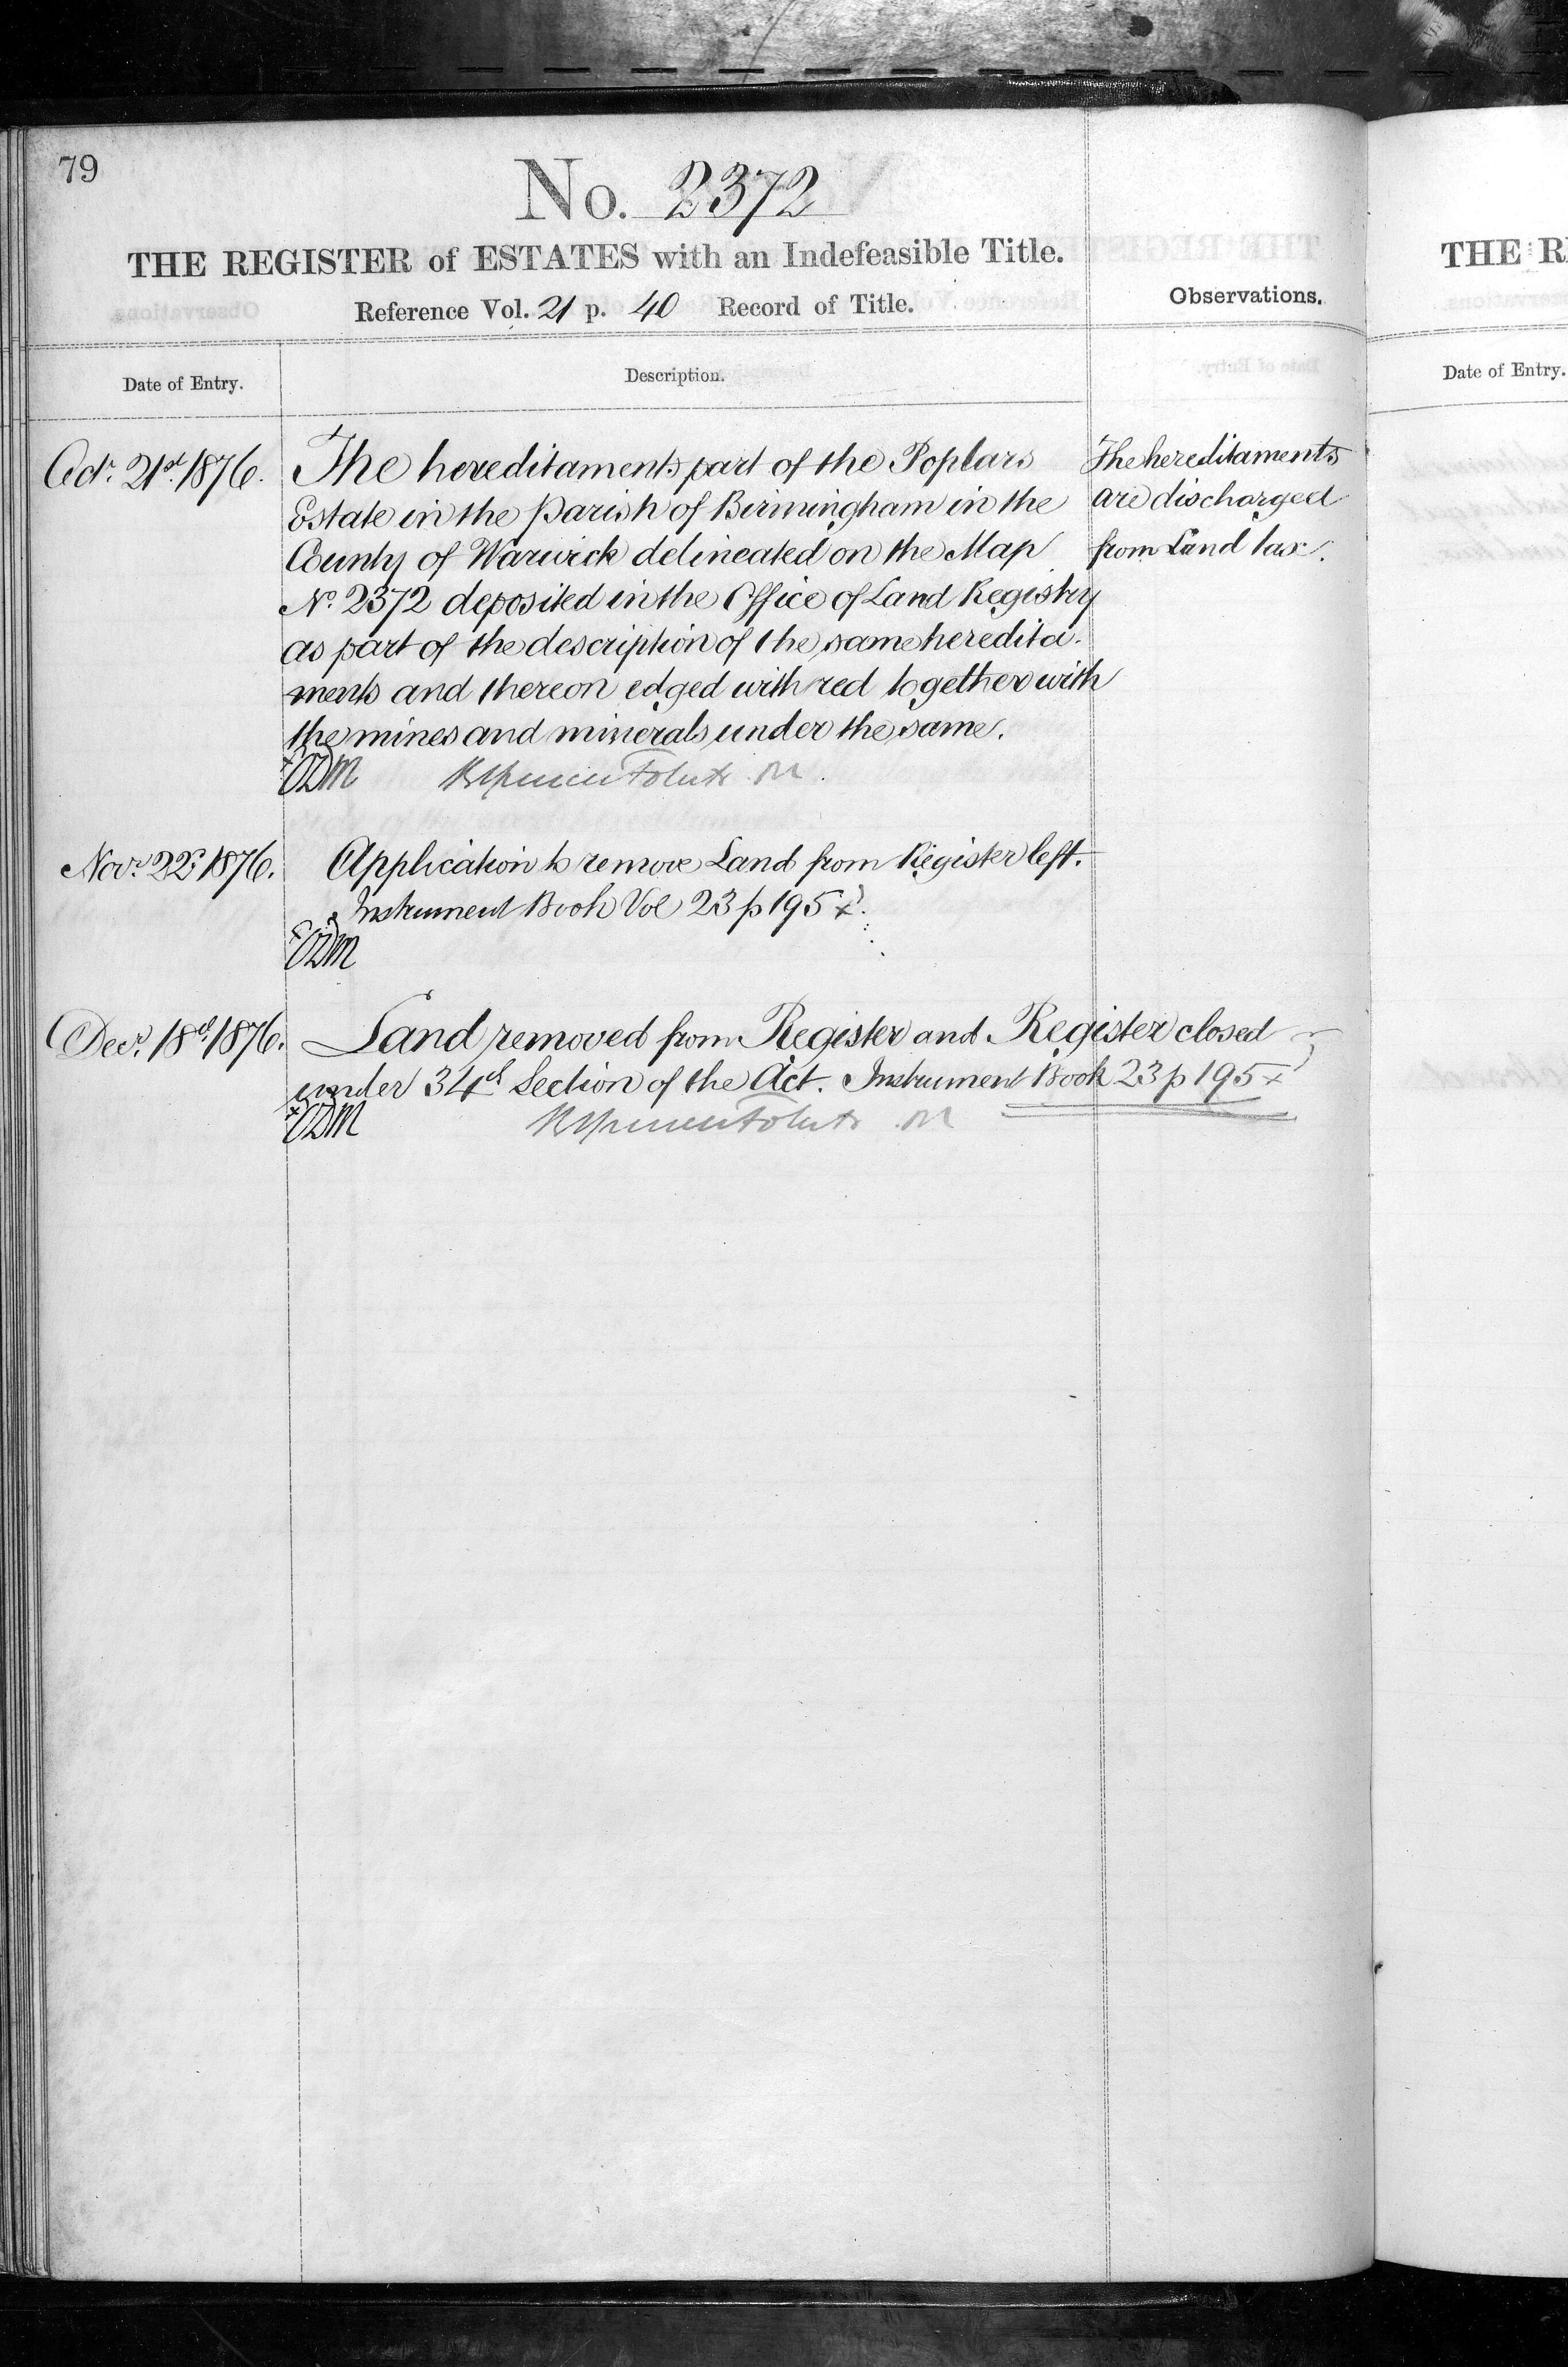 79
No. 2372
THE REGISTER of ESTATES with an Indefeasible Title.
Reference Vol. 21 p. 40 Record of Title.
Observations.
Date of Entry.
Description.
Octr. 21st. 1876.
The hereditaments part of the Poplars
Estate in the Parish of Birmingham in the
County of Warwick delineated on the Map
No. 2372 deposited in the Office of Land Registry
as part of the description of the same heredita-
ments and thereon edged with red together with
the mines and minerals under the same.
The hereditaments
are discharged
from Land tax.
Novr. 22d. 1876.
Application to remove Land from Register left.
Instrument Book Vol 23 p 195 x.
Decr. 18th. 1876.
Land removed from Register and Register closed
under 34th Section of the Act. Instrument Book 23 p 195 x
THE R
Date of Entry.